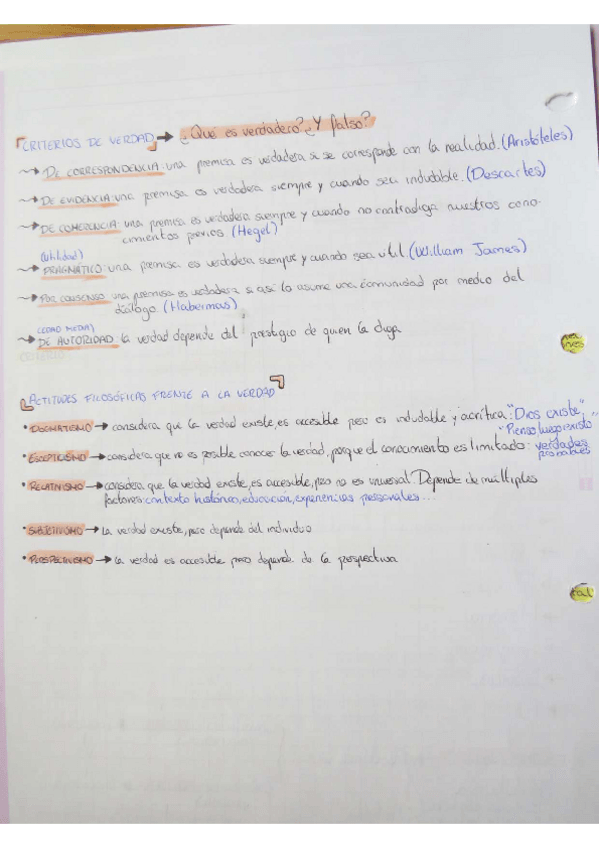 CRITERIOS DE VERDAD → ¿Qué es verdadero? ¿Y falso?
DE CORRESPONDENCIA: una premisa es verdadera si se corresponde con la realidad. (Aristóteles)
DE EVIDENCIA: una premisa es verdadera siempre y cuando sea indudable. (Descartes)
DE COHERENCIA: una premisa es verdadera siempre y cuando no contradiga nuestros cono-
cimientos previos (Hegel)
(utilidad)
PRAGMÁTICO: una premisa es verdadera siempre y cuando sea util (William James)
POR CONSENSO una premisa es verdadera si así lo asume una comunidad por medio del
diálogo (Habermas)
(EDAD MEDIA)
DE AUTORIDAD la verdad depende del prestigio de quien la diga
ACTITUDES FILOSÓFICAS FRENTE A LA VERDAD
• DOGMATISMO → considera que la verdad existe, es accesible pero es indudable y acrítica: "Dios existe",
"Pienso luego existo"
• ESCEPTICISMO → considera que no es posible conocer la verdad, porque el conocimiento es limitado: verdades
probables
• RELATIVISMO → considera que la verdad existe, es accesible, pero no es universal. Depende de múltiples
factores: contexto histórico, educación, experiencias personales...
• SUBJETIVISMO → La verdad existe, pero depende del individuo
• PERSPECTIVISMO → la verdad es accesible pero depende de la perspectiva